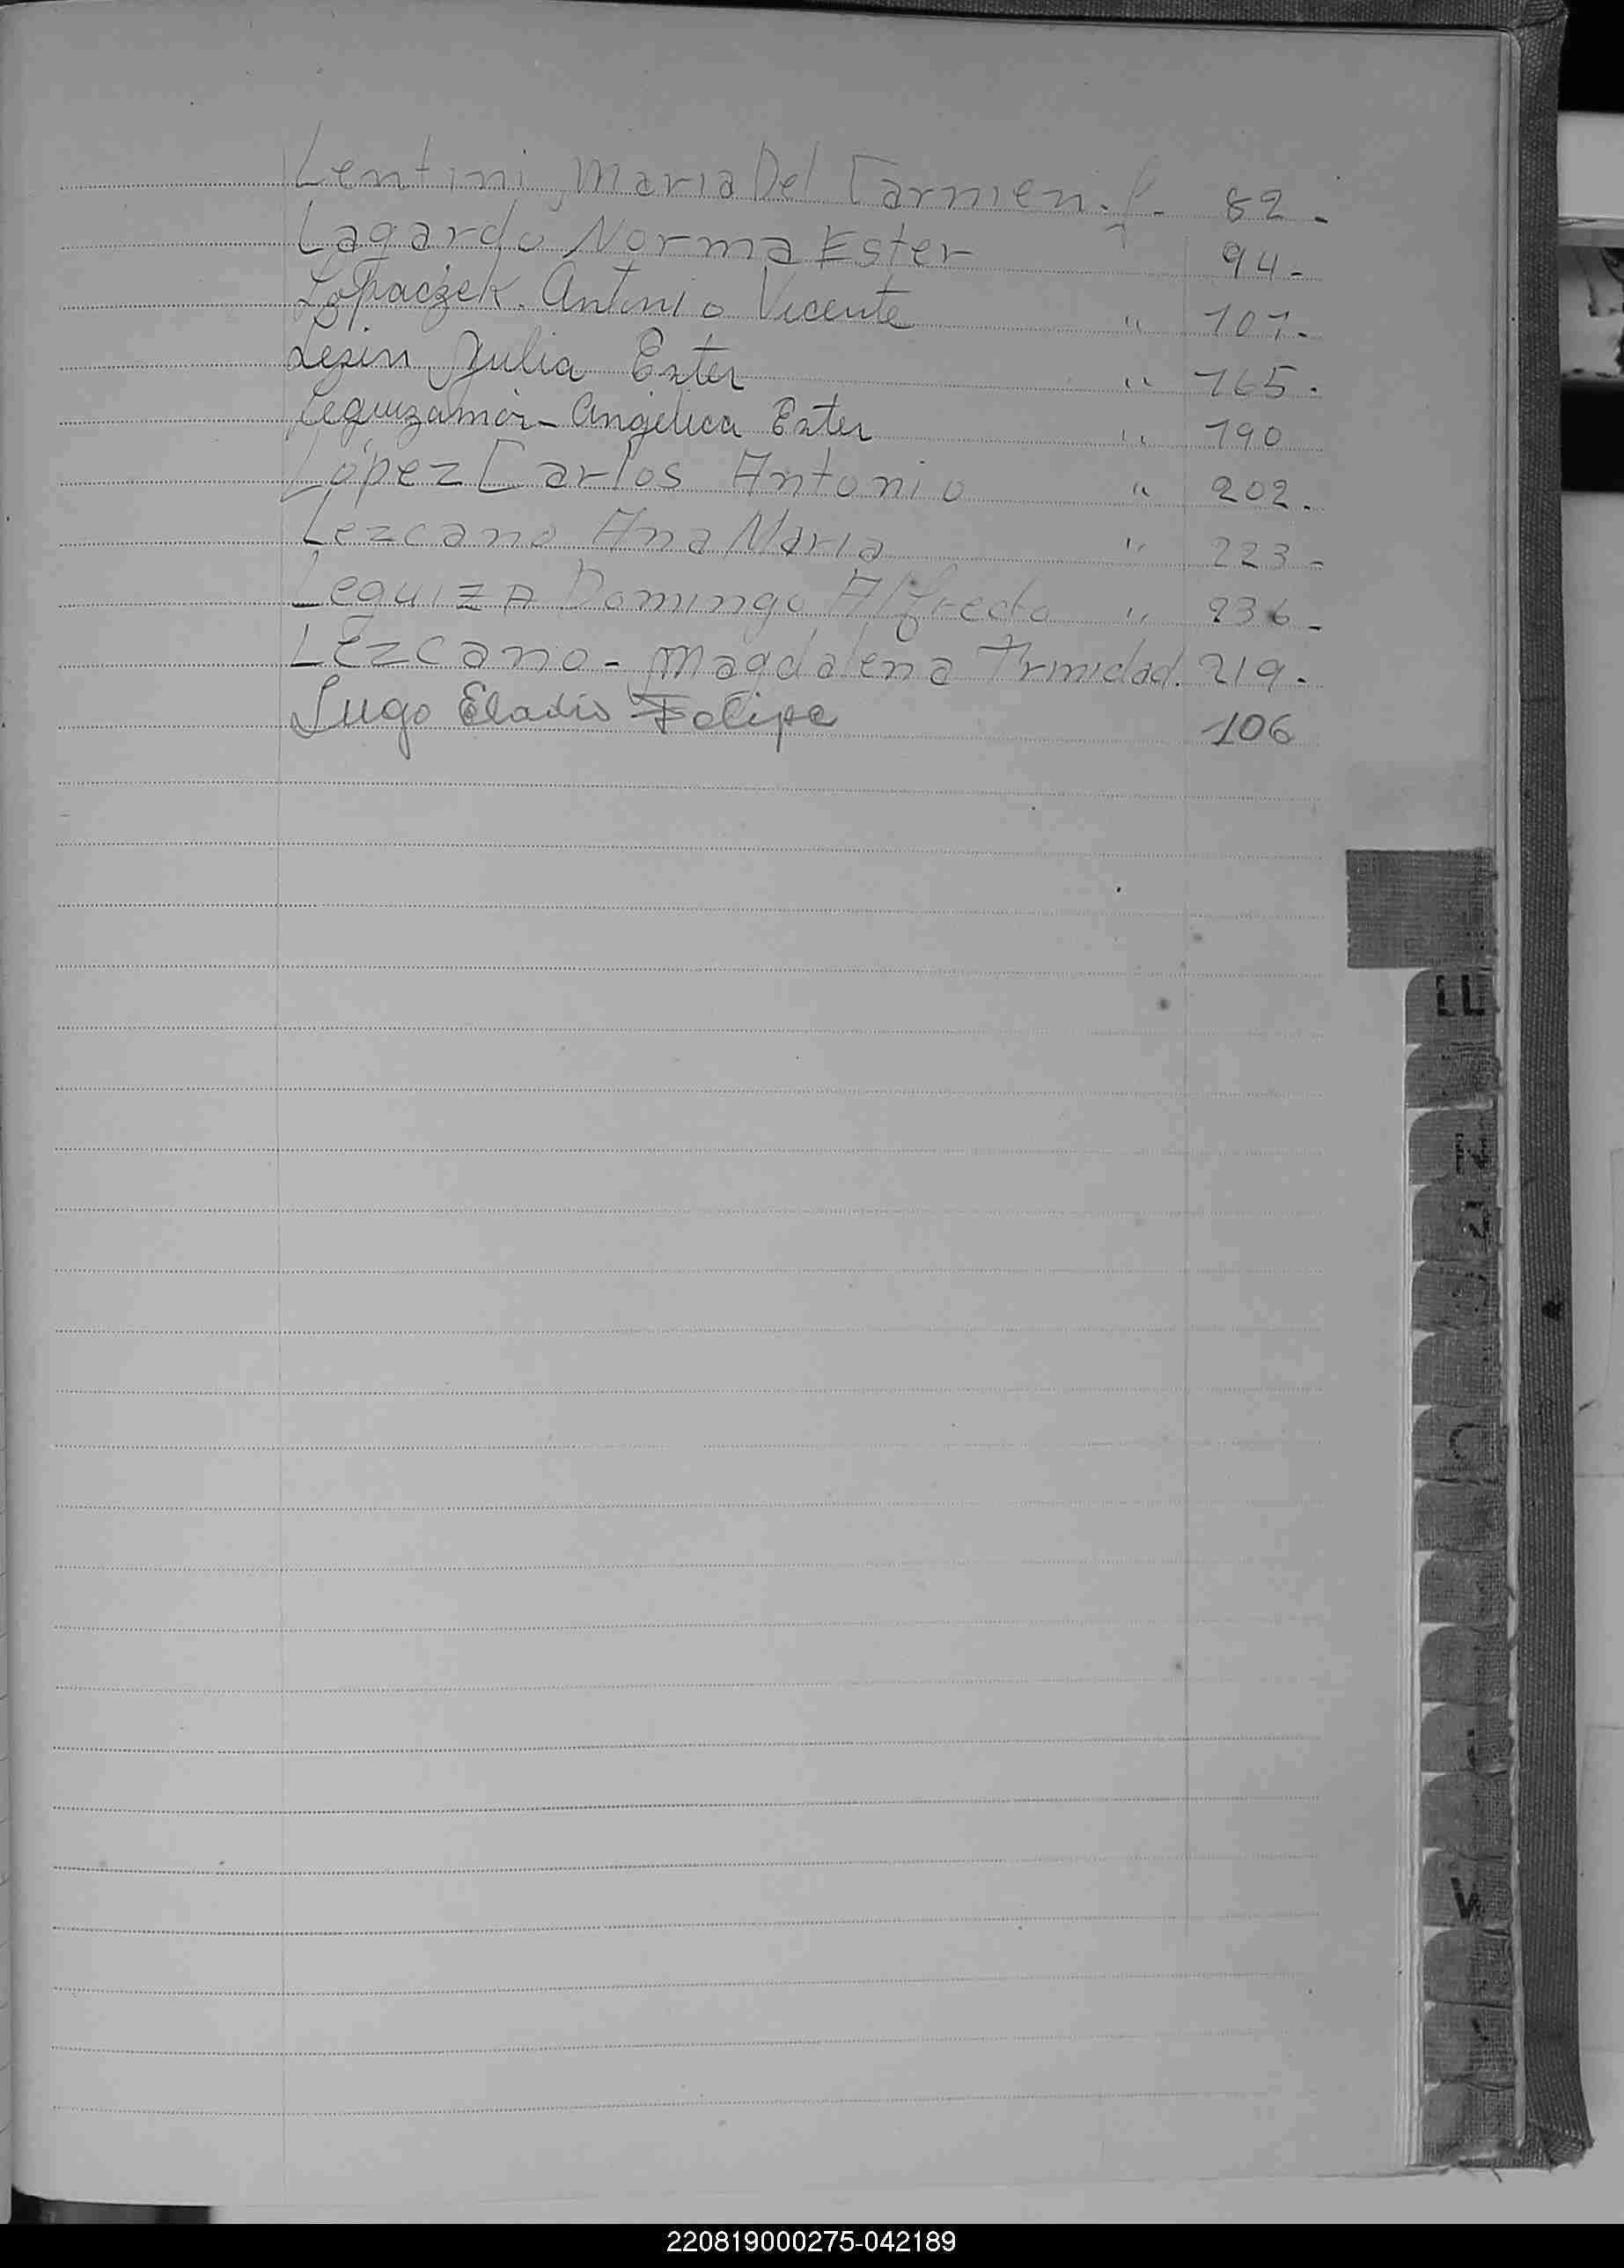 Lentini, Maria Del Carmen. f- 82.
Lagardo Norma Ester 94-
Lopaczek. Antonio Vicente " 101-
Lezin Julia Ester " 165.
Leguizamón - Angélica Ester " 190
López Carlos Antonio " 202.
Lezcano Ana Maria " 223-
LeguizA Domingo Alfredo " 236-
Lezcano - Magdalena Trinidad. 219.
Lugo Eladio Felipe 106
LL
N
Ñ
W
220819000275-042189